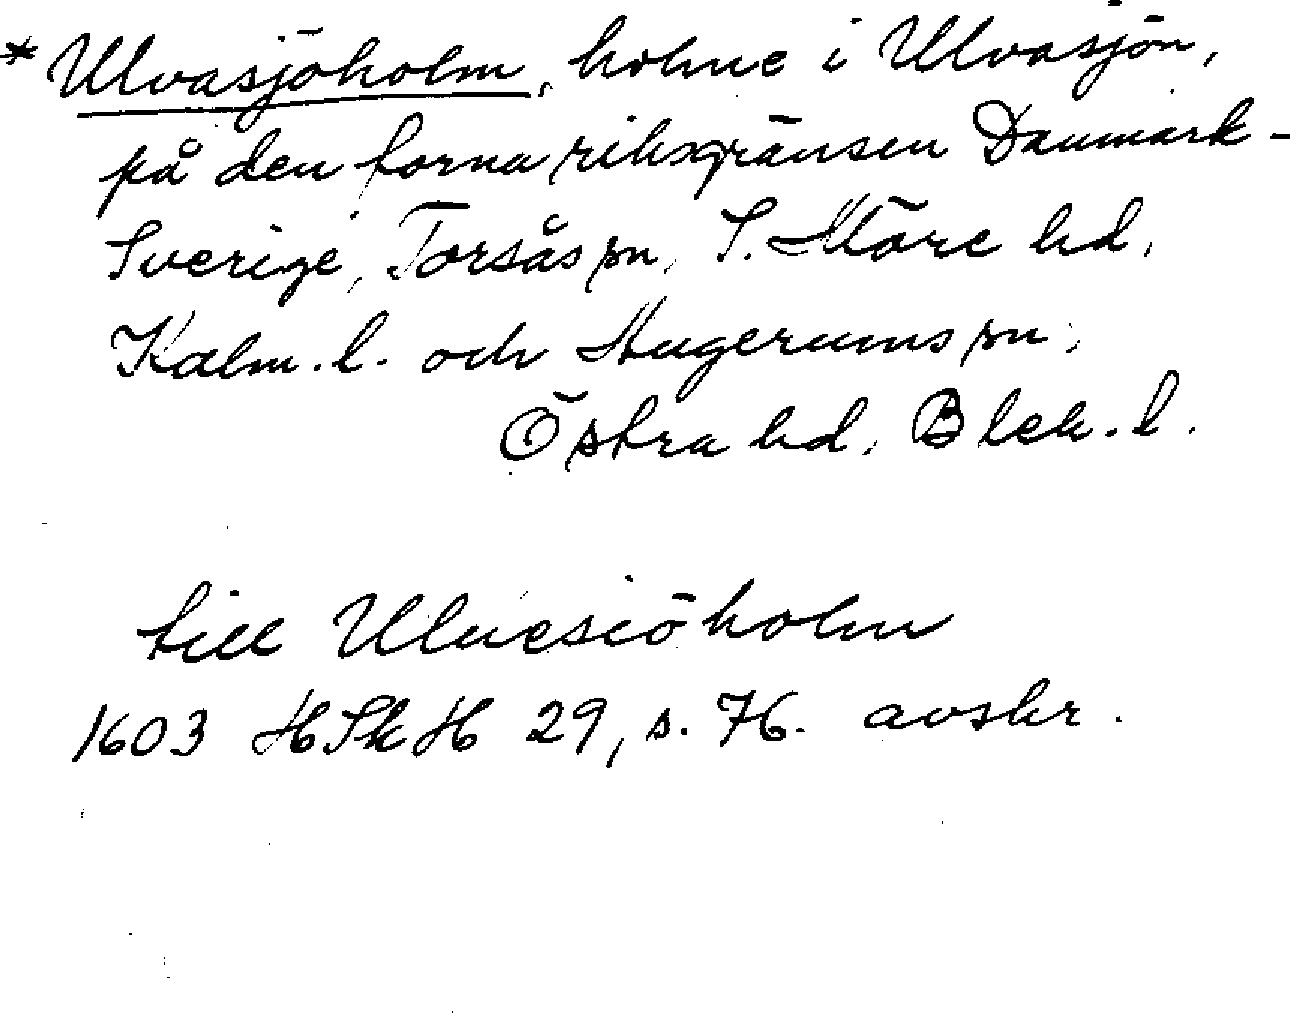 * Ulvasjöholm, holme i Ulvasjön,
på den forna riksgränsen Danmark-
Sverige, Torsås sn, S. Möre hd,
Kalm. l. och Augerums sn,
Östra hd, Blek. l.
till Uluesiöholm
1603 HSkH 29, s. 76. avskr.